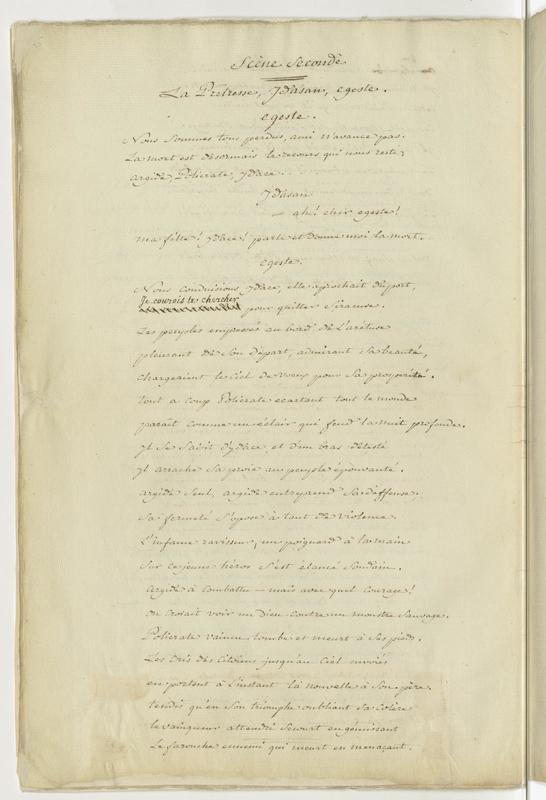 Scène Seconde
La Prêtresse, Ydasan, egeste.
egeste.
Nous Sommes tous perdus, ami n'avance pas.
La mort est désormais le recours qui nous reste,
argide, Policrate, ydace...
Ydasan
— ah! cher egeste!
ma fille! ydace! parle et donne moi la mort.
egeste.
Nous conduisions ydace, elle aprochait du port,
Je courois te chercher
pour quitter Siracuse.
Les peuples empressés au bord de L'aréthuse
pleurant de Son départ, admirant Sa beauté,
chargeaient le Ciel de voeux pour Sa prospérité.
tout a coup Policrate ecartant tout le monde
paraît comme un éclair qui fend la nuit profonde.
yl Se Saisit d'ydace et d'un bras détesté
yl arrache Sa proie au peuple épouvanté.
argide Seul, argide entreprend Sa déffense;
Sa fermeté S'opose à tant de violence.
L'infame ravisseur, un poignard à la main
Sur ce jeune héros S'est élancé Soudain.
argide a combattu — mais avec quel courage!
on croiait voir un Dieu contre un monstre Sauvage.
Policrate vaincu tombe et meurt à Ses pieds.
Les Cris des Citoiens jusqu'au Ciel envoiés
en portent à L'instant la nouvelle à Son père.
tandis qu'en Son triomphe oubliant Sa Colère
le vainqueur attendri Secourt en gémissant
Le farouche ennemi qui meurt en menaçant.